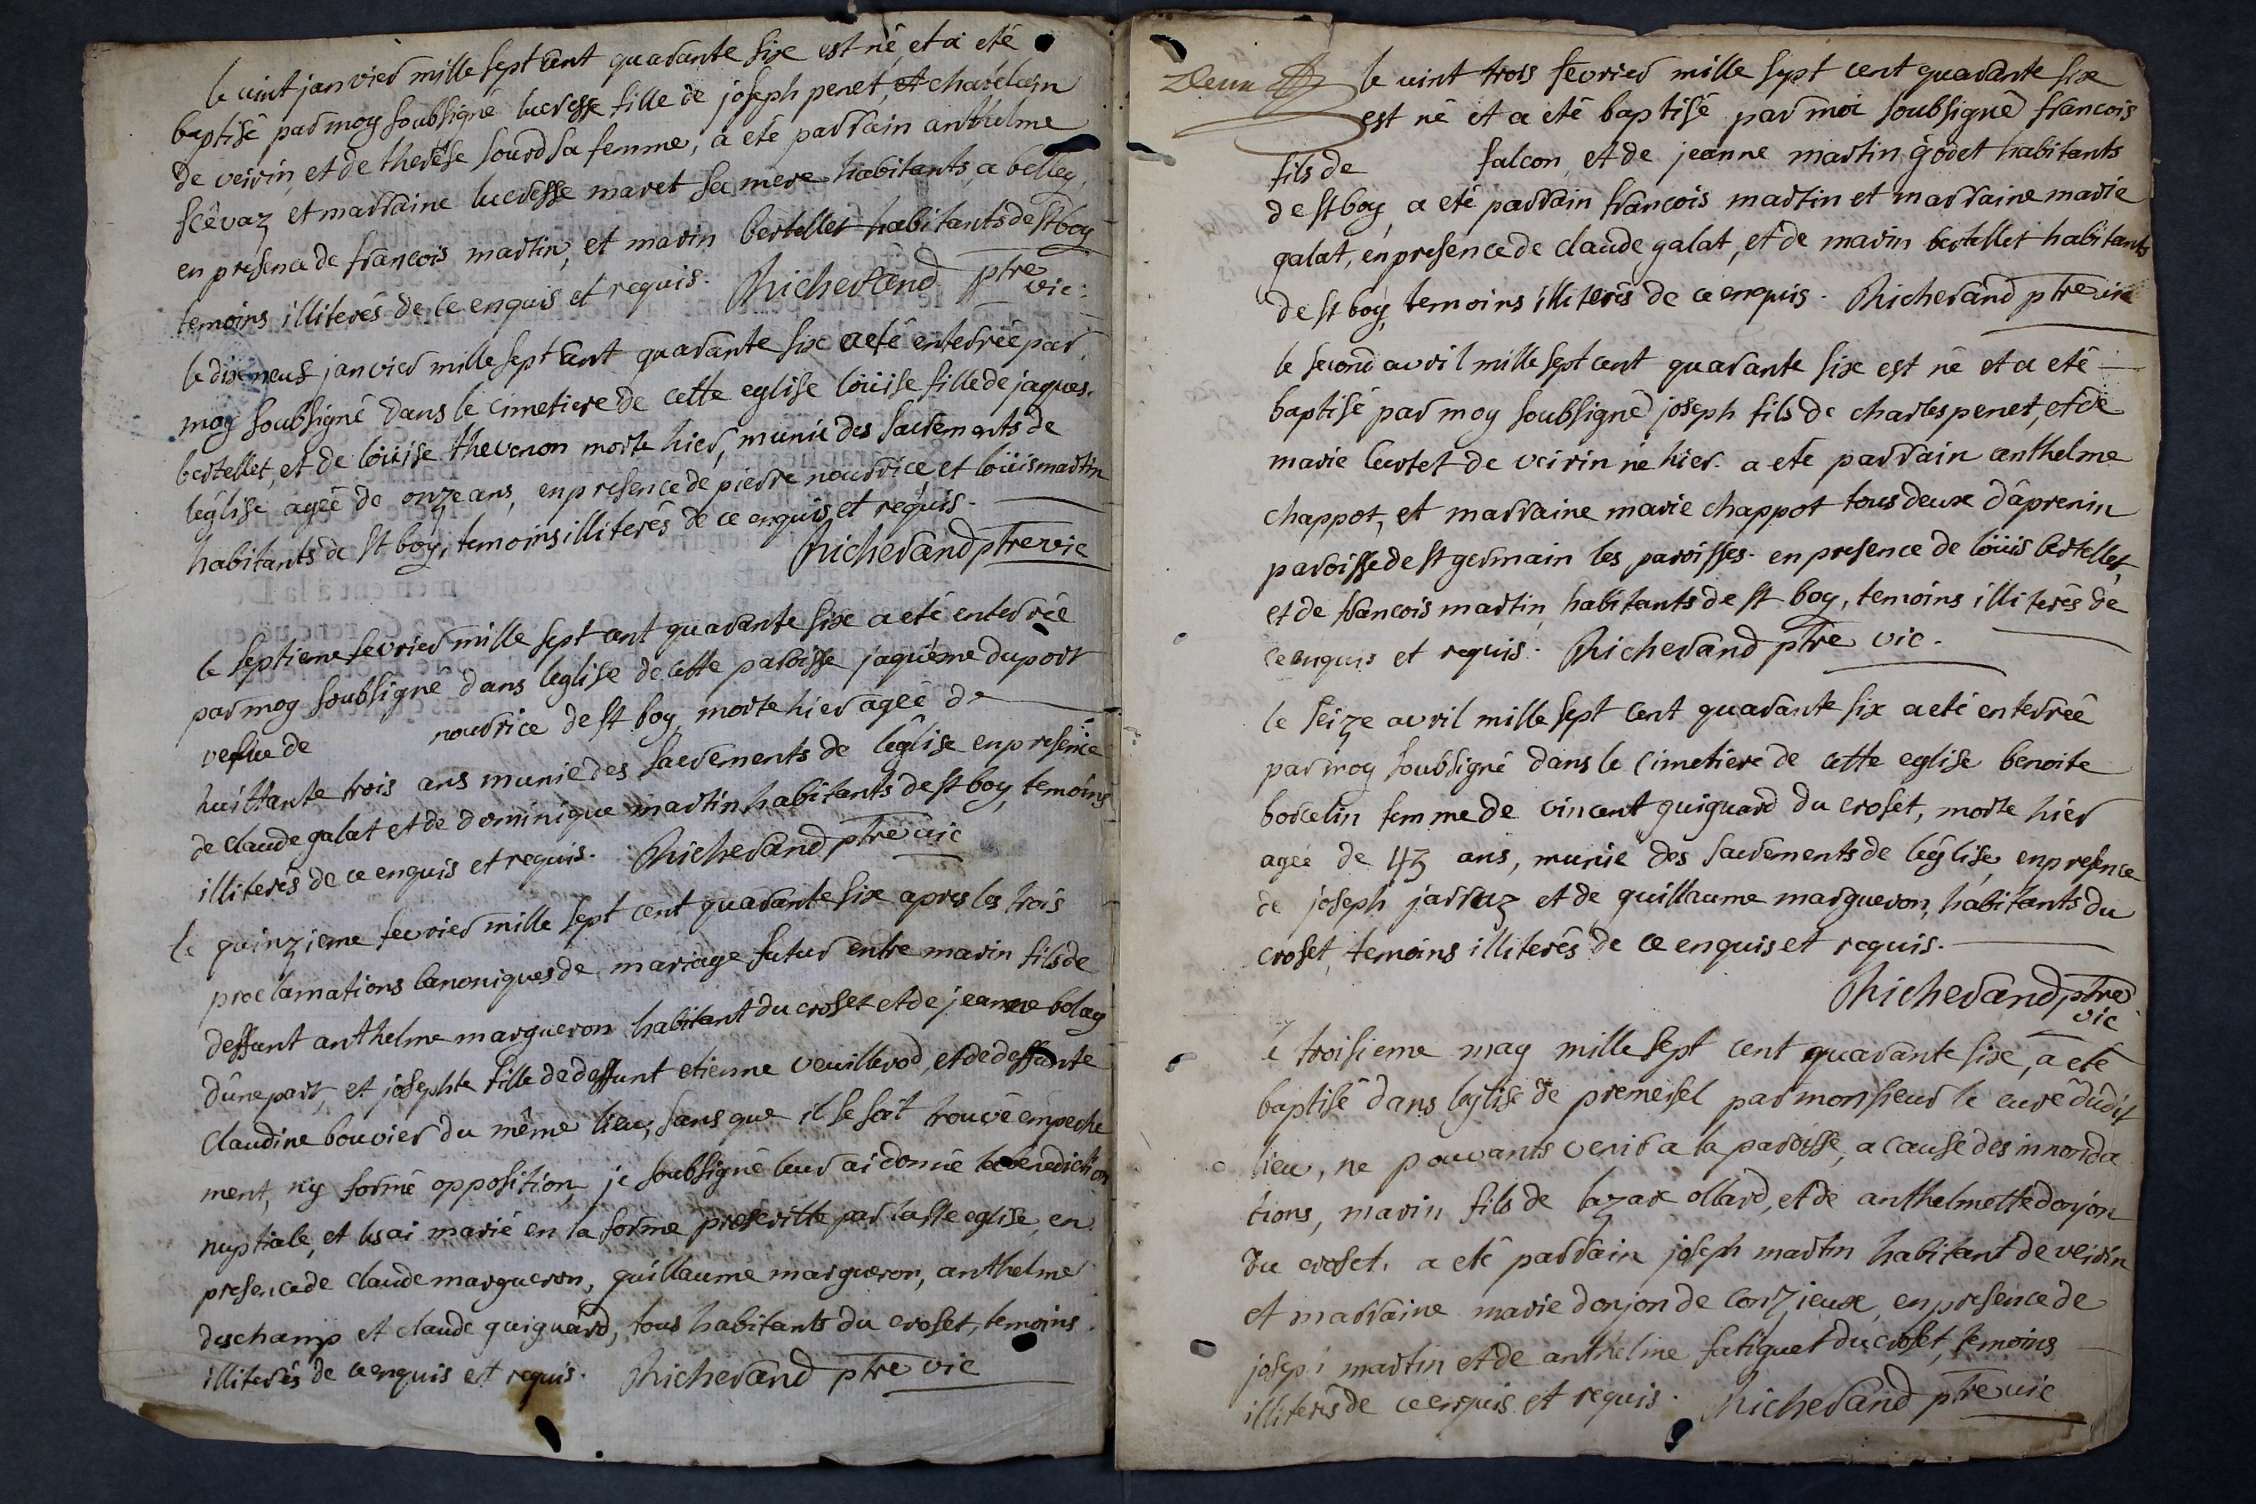 le vint janvier mille sept cent quarante six est né, et a eté
baptisé par moy soubsigné lucresse fille de joseph penet, et chatelain
de veirin, et de therêse sourd sa femme, a eté parrain anthelme
scêvaz et marraine lucresse maret sa mere habitants a belley,
en presence de francois martin, et marin bertellet habitants de st boy
temoins illiterés de ce enquis et requis. Richerand ptre
vic:
le dixneuf janvier mille sept cent quarante six a eté enterrée par
moy soubsigné dans le cimetiere de cette eglise loüise fille de jaques
bertellet, et de loüise thevenon morte hier, munie des sacrements de
l'église agée de onze ans, en presence de pierre nourrice, et loüis martin
habitants de st boy, temoins illiterés de ce enquis et requis.
Richerand ptre vic
le septieme fevrier mille sept cent quarante six a eté enterrée
par moy soubsigné dans leglise de cette paroisse jaquême duport
vefue de nourrice de st boy morte hier agée de
huittante trois ans munie des sacrements de l'église en presence
de claude galat et de dominique martin habitants de st boy, temoins
illiterés de ce enquis et requis. Richerand ptre vic
le quinzieme fevrier mille sept cent quarante six apres les trois
proclamations canoniques de mariage futur entre marin fils de
deffunt anthelme margueron habitant du croset et de jeanne bolay
d'une part, et josephte fille de deffunt etienne veuillerod, et de deffunte
claudine bouvier du même lieu, sans que il se soit trouvé empeche
ment, ny formé opposition, je soubsigné leur ai donné la benediction
nuptiale, et les ai marié en la forme prescritte par la ste eglise, en
presence de claude margueron, guillaume margueron, anthelme
deschamp et claude guiguard, tous habitants du croset, temoins
illiterés de ce enquis et requis. Richerand ptre vic
Deux
le vint trois fevrier mille sept cent quarante six
est né et a eté baptisé par moi soubsigné francois
fils de falcon, et de jeanne martin godet habitants
de st boy, a eté parrain francois martin et marraine marie
galat, en presence de claude galat, et de marin bertellet habitants
de st boy, temoins illiterés de ce enquis. Richerand ptre vic
le second avril mille sept cent quarante six est né et a eté
baptisé par moy soubsigné joseph fils de charles penet, et de
marie curtet de veirin né hier. a eté parrain anthelme
chappot, et marraine marie chappot tous deux d'âprenin
paroisse de st germain les paroisses. en presence de loüis bertellet,
et de francois martin, habitants de st boy, temoins illiterés de
ce enquis et requis. Richerand ptre vic.
le seize avril mille sept cent quarante six a eté enterrée
par moy soubsigné dans le cimetiere de cette eglise benoite
borcelin femme de vincent guiguard du croset, morte hier
agée de 43 ans, munie des sacrements de l'église, en presence
de joseph jarraz et de guillaume margueron, habitants du
croset, temoins illiterés de ce enquis et requis.
Richerand ptre
vic
le troisieme may mille sept cent quarante six, a eté
baptisé dans leglise de premeisel par monsieur le curé dudit
lieu, ne pouvants venir a la paroisse, a cause des innonda
tions, marin fils de lazare ollard, et de anthelmette donjon
du croset. a eté parrain joseph martin habitant de veirin
et marraine marie donjon de conzieux, en presence de
joseph martin et de anthelme fatiguet du croset, temoins
illiterés de ce enquis et requis. Richerand ptre vic